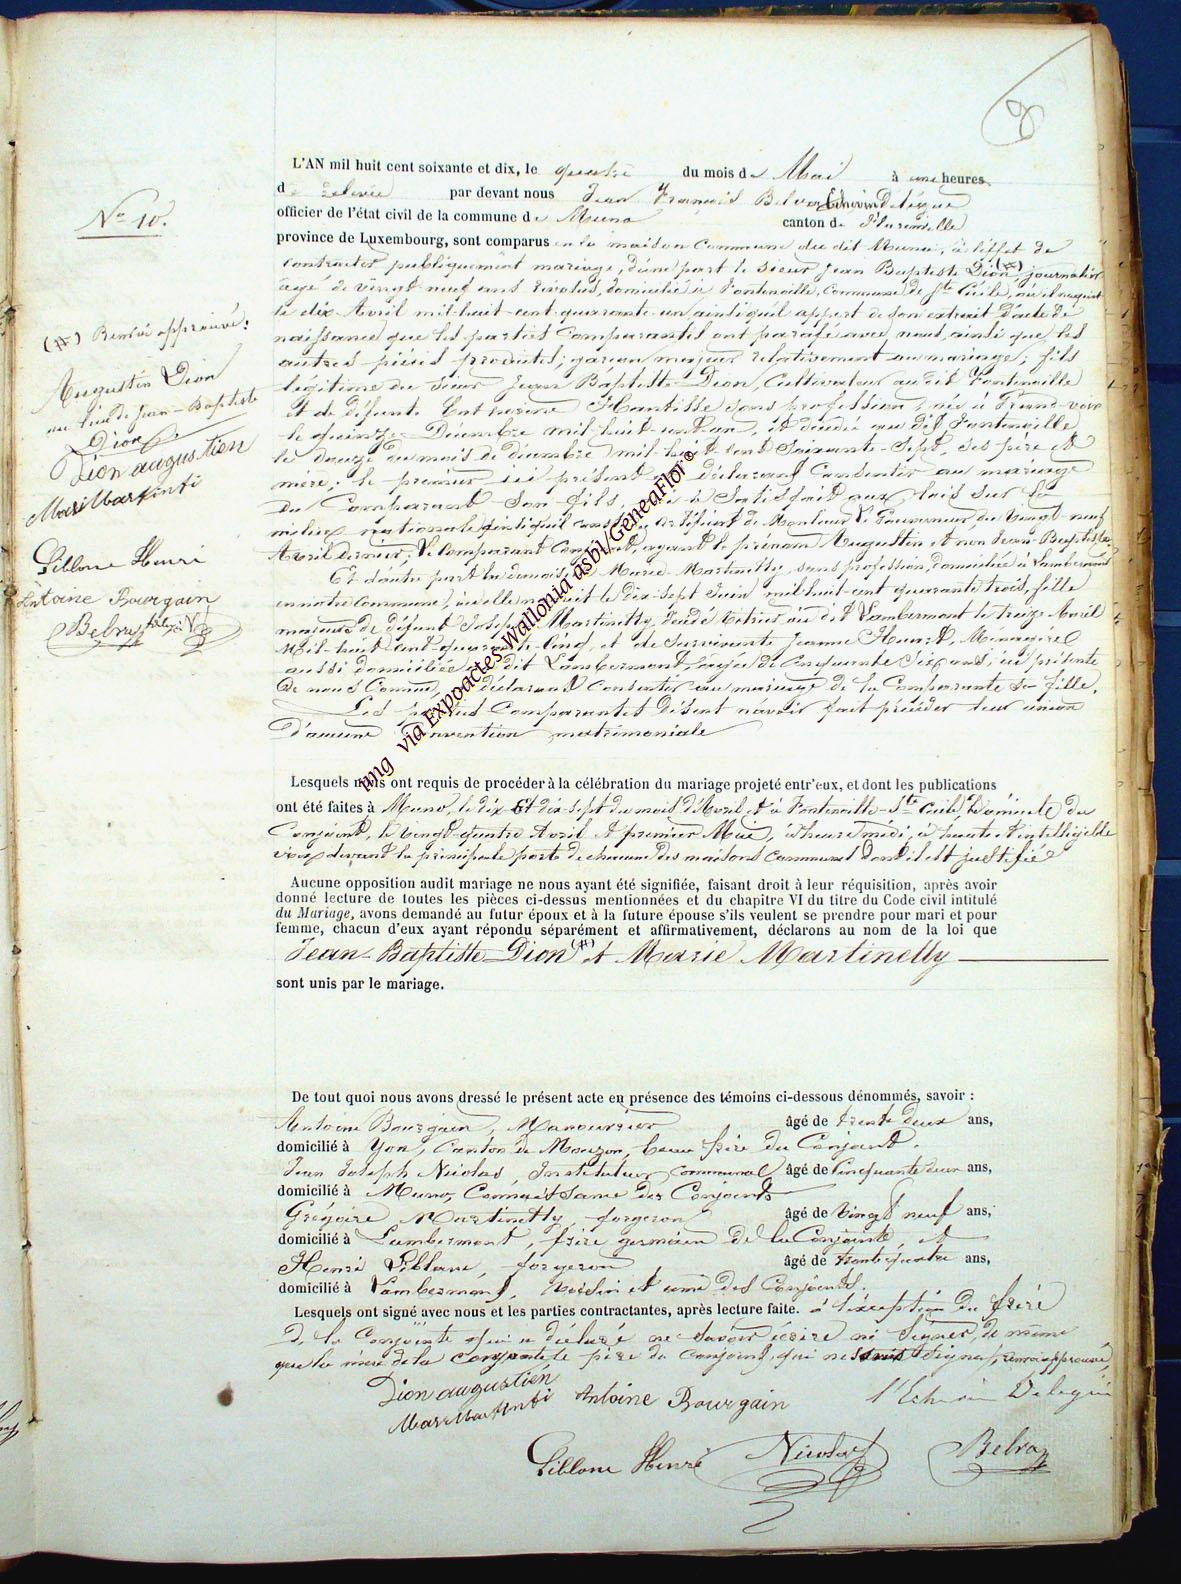 8
L'AN mil huit cent soixante et dix, le quatre du mois de Mai à une heures
de relevée par devant nous Jean François Belva Echevin Délégué
officier de l'état civil de la commune de Muno canton de Florenville
province de Luxembourg, sont comparus en la maison Commune du dit Muno, à l'effet de
contracter publiquement mariage, d'une part le sieur Jean Baptiste Dion, (#) journalier
âgé de vingt neuf ans révolus, domicilié à Fontenoille, Commune de Ste Cécile, où il naquit
le dix Avril mil-huit-cent quarante-un, ainsi qu'il appert de son extrait d'acte de
naissance que les parties comparantes ont parafé avec nous, ainsi que les
autres pièces produites; garçon majeur relativement au mariage; fils
légitime du sieur Jean Baptiste Dion, Cultivateur audit Fontenoille
Et de défunte Catherine sans profession, née à
le quinze Décembre mil-huit-cent-un, et décédée au dit Fontenoille
le douze du mois de décembre mil-huit-cent Soixante-Sept, ses père et
mère; le premier ici présent et déclarant Consentir au mariage
du Comparant Son fils, a Satisfait aux lois sur la
milice nationale ainsi qu'il Certificat de Monsieur le Gouverneur du Vingt-neuf
Avril dernier; le Comparant ayant le prénom Augustin et non Jean-Baptiste
Et d'autre part la demoiselle Marie Martinetty, sans profession, domiciliée à Lambermont
en notre Commune, où elle naquit le dix-Sept Juin mil huit-cent quarante trois, fille
majeure de défunt Joseph Martinetty, décédé au dit Lambermont le treize Avril
Mil-huit-Cent-quarante-Cinq, et de Survivante Jeanne Huart, Ménagère
aussi domiciliée au dit Lambermont, âgée de Cinquante Six ans, ici présente
de nous Connue, déclarant Consentir au mariage de la Comparante sa fille.
Les parties Comparantes disent n'avoir fait précéder leur union
d'aucune Convention matrimoniale
Lesquels nous ont requis de procéder à la célébration du mariage projeté entr'eux, et dont les publications
ont été faites à Muno, le dix Et dix-sept du mois d'Avril et à Fontenoille-Ste Cécile, domicile du
Conjoint, le Vingt-quatre Avril et premier Mai, à heure midi, à haute et intelligible
voix devant la principale porte de chacune des maisons Communes dont il est justifié
Aucune opposition audit mariage ne nous ayant été signifiée, faisant droit à leur réquisition, après avoir
donné lecture de toutes les pièces ci-dessus mentionnées et du chapitre VI du titre du Code civil intitulé
du Mariage, avons demandé au futur époux et à la future épouse s'ils veulent se prendre pour mari et pour
femme, chacun d'eux ayant répondu séparément et affirmativement, déclarons au nom de la loi que
Jean-Baptiste Dion (#) et Marie Martinetty
sont unis par le mariage.
De tout quoi nous avons dressé le présent acte en présence des témoins ci-dessous dénommés, savoir :
Antoine Bourgain, Manouvrier âgé de trente deux ans,
domicilié à Canton de Mouzon, beau frère du Conjoint.
Jean Joseph Nicolas, Instituteur communal âgé de Cinquante deux ans,
domicilié à Muno, Connaissance des Conjoints
Grégoire Martinetty, forgeron âgé de Vingt neuf ans,
domicilié à Lambermont, frère germain de la Conjointe, et
Henri forgeron âgé de trente quatre ans,
domicilié à Lambermont, voisin et ami des Conjoints.
Lesquels ont signé avec nous et les parties contractantes, après lecture faite. à l'exception du frère
de la Conjointe qui a déclaré ne Savoir écrire ni Signer, de même
que la mère de la Conjointe, le père du Conjoint, qui ne signer, renvoi approuvé,
Dion augustien
Mari Martinti Antoine Bourgain l'Echevin Délégué
Henri Nicolas Belva
No 10.
(#) Renvoi approuvé:
Augustin Dion
au lieu de Jean-Baptiste
Dion
Dion augustien
Mari Martinti
Henri
Antoine Bourgain
Belva
img via Expoactes Wallonia asbl/GeneaFlor©